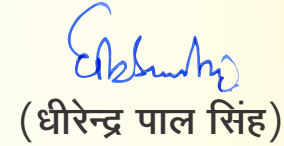 (धीरेन्द्र पाल सिंह)